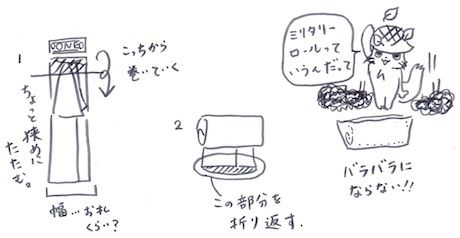 1
PONEO
こっちから
巻いていく
ちょっと狭めに
たたむ。
幅…お札
くらい？
2
この部分を
折り返す.
ミリタリー
ロールって
いうんだって
バラバラに
ならない!!